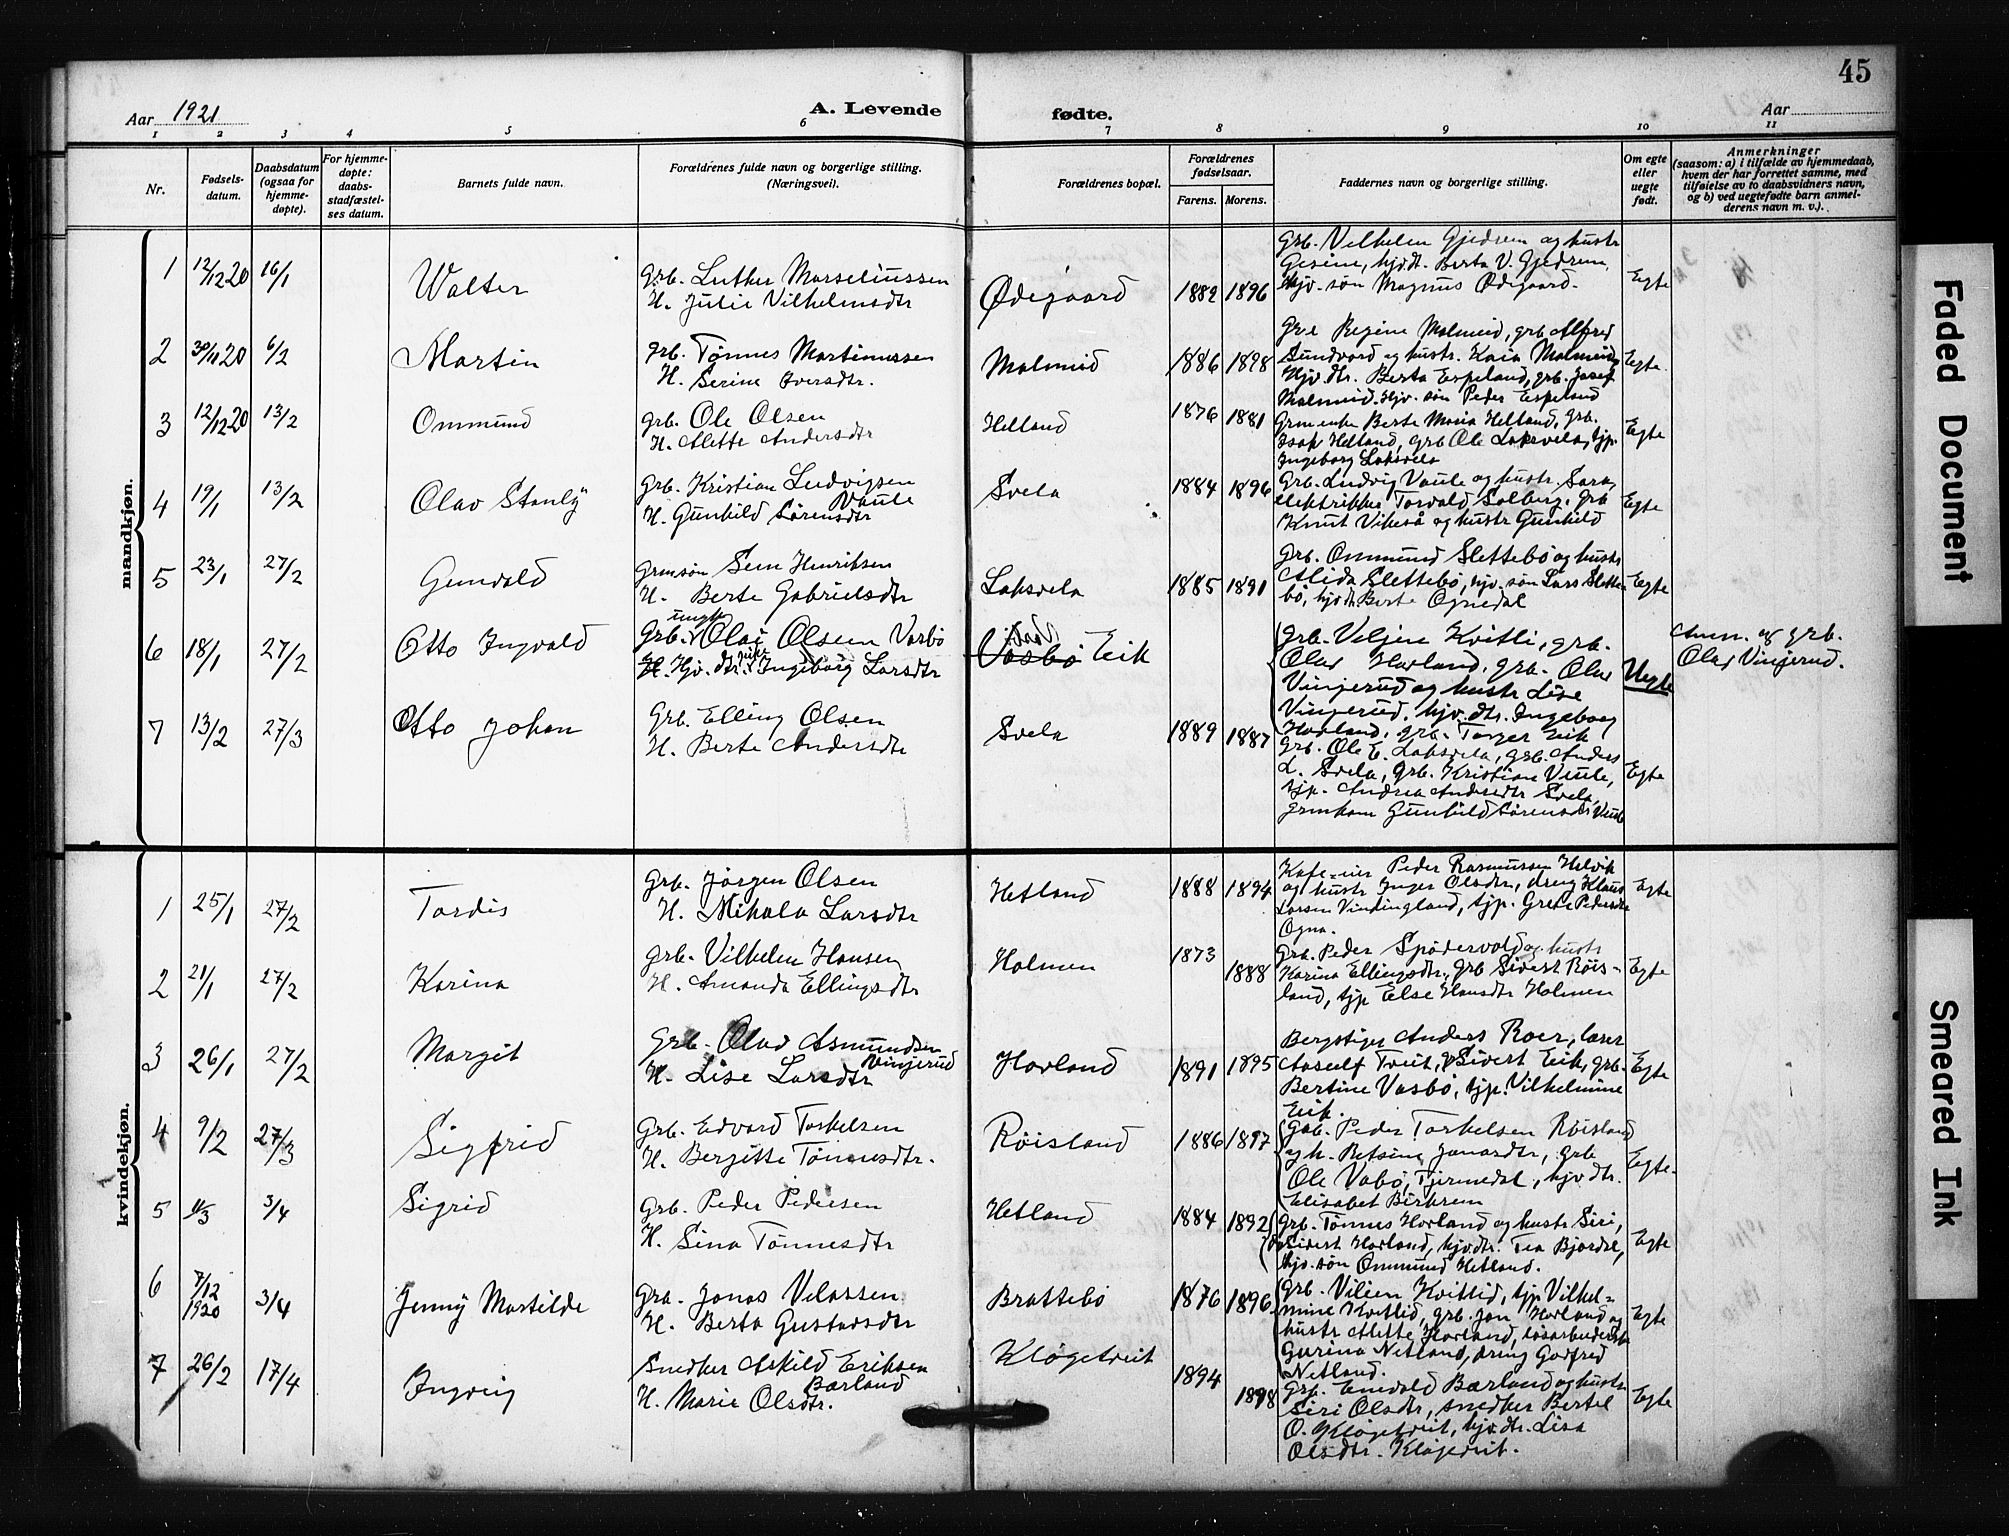 45
Aar 1921
A. Levende fødte.
Aar
1 2 3 4 5 6 7 8 9 10 11
Nr.
Fødsels-
datum.
Daabsdatum
(ogsaa for
hjemme-
døpte).
For hjemme-
døpte:
daabs-
stadfæstel-
ses datum.
Barnets fulde navn.
Forældrenes fulde navn og borgerlige stilling.
(Næringsvei).
Forældrenes bopæl.
Forældrenes
fødselsaar.
Farens. Morens.
Faddernes navn og borgerlige stilling.
Om egte
eller
uegte
født.
Anmerkninger
(saasom: a) i tilfælde av hjemmedaab,
hvem der har forrettet samme, med
tilføielse av to daabsvidners navn,
og b) ved uegtefødte barn anmel-
derens navn m. v.).
mandkjøn.
1 12/12 20 16/1 Walter
Grb. Luther Marseliussen
H. Julie Vilhelmsdtr
Ødegaard 1889 1896
Grb. Vilhelm Gjedrem og hustr
Gesine, hjv.dt. Berta V. Gjedrem,
hjv. søn Magnus Ødegaard.
Egte
2 30/11 20 6/2 Martin
Grb. Tønnes Martinussen
H. Serine Iversdtr.
Malmeid 1886 1898
Regine Malmeid, grb Alfred
Sundvord og hustr. Kaia Malmeid,
Hjv. dtr. Berta Espeland, grb. Josef
Malmeid. Hjv. søn Peder Espeland
Egte.
3 12/12 20 13/2 Ommund
Grb. Ole Olsen
H. Alette Andersdtr
Helland 1876 1881
Grmenke Berte Maria Helland, Grb.
Isak Helland, grb Ole Laksvela, tjp.
Ingeborg Laksvela
Egte
4 19/1 13/2 Olav Stanly
Grb. Kristian Ludvigsen
Vaule
H. Gunhild Sørensdtr
Svela 1884 1896
Grb. Ludvig Vaule og hustr. Sara,
elektrikker Torvald Solberg, grb
Knut Vikeså og hustr Gunhild
Egte
5 23/1 27/2 Gunvald
Grmsøn Sem Henriksen
H. Berte Gabrielsdtr
Laksvela 1885 1891
Grb. Ommund Slettebø og hustr
Alida Slettebø, hjv. søn Lars Slette-
bø, hjv.dt. Berte Ognedal
Egte
6 18/1 27/2 Otto Ingvald
ungk
Grb. Olai Olsen Vasbø
H. Hjv. dtr. pike Ingeborg Larsdtr
Vasbø Eik
Grb. Veljen Kvitli, grb.
Olav Hovland, grb. Olav
Vingerud og hustr Lise
Vingerud, hjv. dtr. Ingeborg
Hovland, grb. Torger Eik
Uegte
Anm. af grb.
Olav Vinjerud.
7 13/2 27/3 Otto Johan
Grb. Elling Olsen
H. Berte Andersdtr
Svela 1889 1887
Grb. Ole E. Laksvela, grb. Anders
L. Svela, grb. Kristian Vaule,
tjp. Andrea Andersdtr Svela,
grmkom Gunhild Sørensdtr Vaule
Egte
kvindekjøn.
1 25/1 27/2 Tordis
Grb. Jørgen Olsen
H. Mikala Larsdtr
Hetland 1888 1894
Peder Rasmussen Helvik
og hustr Inger Olsdtr, dreng Klaus
Larsen Vindingland, tjp. Grete Pedersdtr
Ogna.
Egte
2 21/1 27/2 Karina
Grb. Vilhelm Hansen
H. Amanda Ellingsdtr
Holmen 1873 1888
Grb. Peder Spødervold og hustr
Karina Ellingsdtr, Grb Sivert Røis-
land, tjp Else Hansdtr Holmen
Egte
3 26/1 27/2 Margit
Grb. Olav Asmundsen
Vinjerud
H. Lise Larsdtr
Hovland 1891 1895
Bergstiger Anders Roer, lærer
Aasulf Tveit, Sivert Eik, grb.
Bertine Vasbø, tjp. Vilhelmine
Eik.
Egte
4 9/2 27/3 Sigfrid
Grb. Edvard Torkelsen
H. Bergitte Tønnesdtr.
Røisland 1886 1897
Grb. Peder Torkelsen Røisland
og h. Betsine Jonasdtr, grb
Ole Vabø, Tjørnedal, hjv. dtr.
Elisabet Birkrem
Egte.
5 11/3 3/4 Sigrid
Grb. Peder Pedersen
H. Sina Tønnesdtr
Hetland 1884 1892
Grb. Tønnes Hovland og hustr Siri,
Sivert Hovland, hjv.dtr. Tea Bjordal,
hjv. søn Ommund Hetland.
Egte
6 7/12 1920 3/4 Jenny Martilde
Grb. Jonas Velassen
H. Berta Gustavsdtr
Brattebø 1876 1896
Grb. Vilien Kvitlid, tjp. Vilhel-
mine Kvitlid, grb. Jon Hovland og
hustr Alette Hovland, løsarbeiderske
Gurina Netland, dreng Godfred
Netland.
Egte
7 26/2 17/4 Ingveig
Snedker Askild Eriksen
Bærland
H. Marie Olsdtr.
Kløgetveit 1894 1898
Grb. Enevald Bærland og hustr
Siri Olsdtr, snedker Bertel
O. Kløgetveit, hjv. dtr. Lisa
Olsdtr. Kløgetveit.
Egte
Faded Document
Smeared Ink